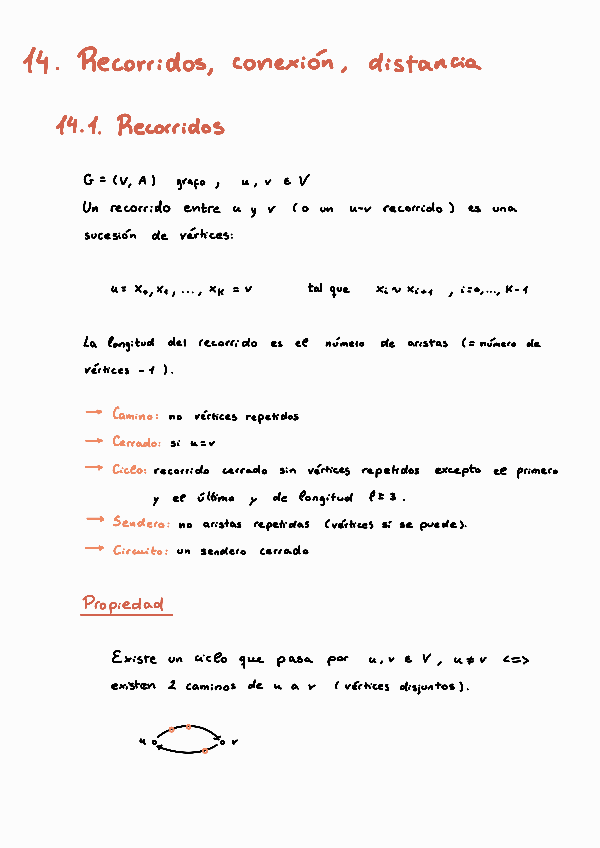 14. Recorridos, conexión, distancia
14.1. Recorridos
G = (V, A) grafo, u, v ∈ V
Un recorrido entre u y v (o un u-v recorrido) es una
sucesión de vértices:
u = x₀, x₁, ..., xₖ = v tal que xᵢ ~ xᵢ₊₁ , i=0,..., k-1
La longitud del recorrido es el número de aristas (= número de
vértices - 1).
→ Camino: no vértices repetidos
→ Cerrado: si u=v
→ Ciclo: recorrido cerrado sin vértices repetidos excepto el primero
y el último y de longitud l ≥ 3.
→ Sendero: no aristas repetidas (vértices si se puede).
→ Circuito: un sendero cerrado
Propiedad
Existe un ciclo que pasa por u, v ∈ V, u ≠ v <=>
existen 2 caminos de u a v (vértices disjuntos).
u v